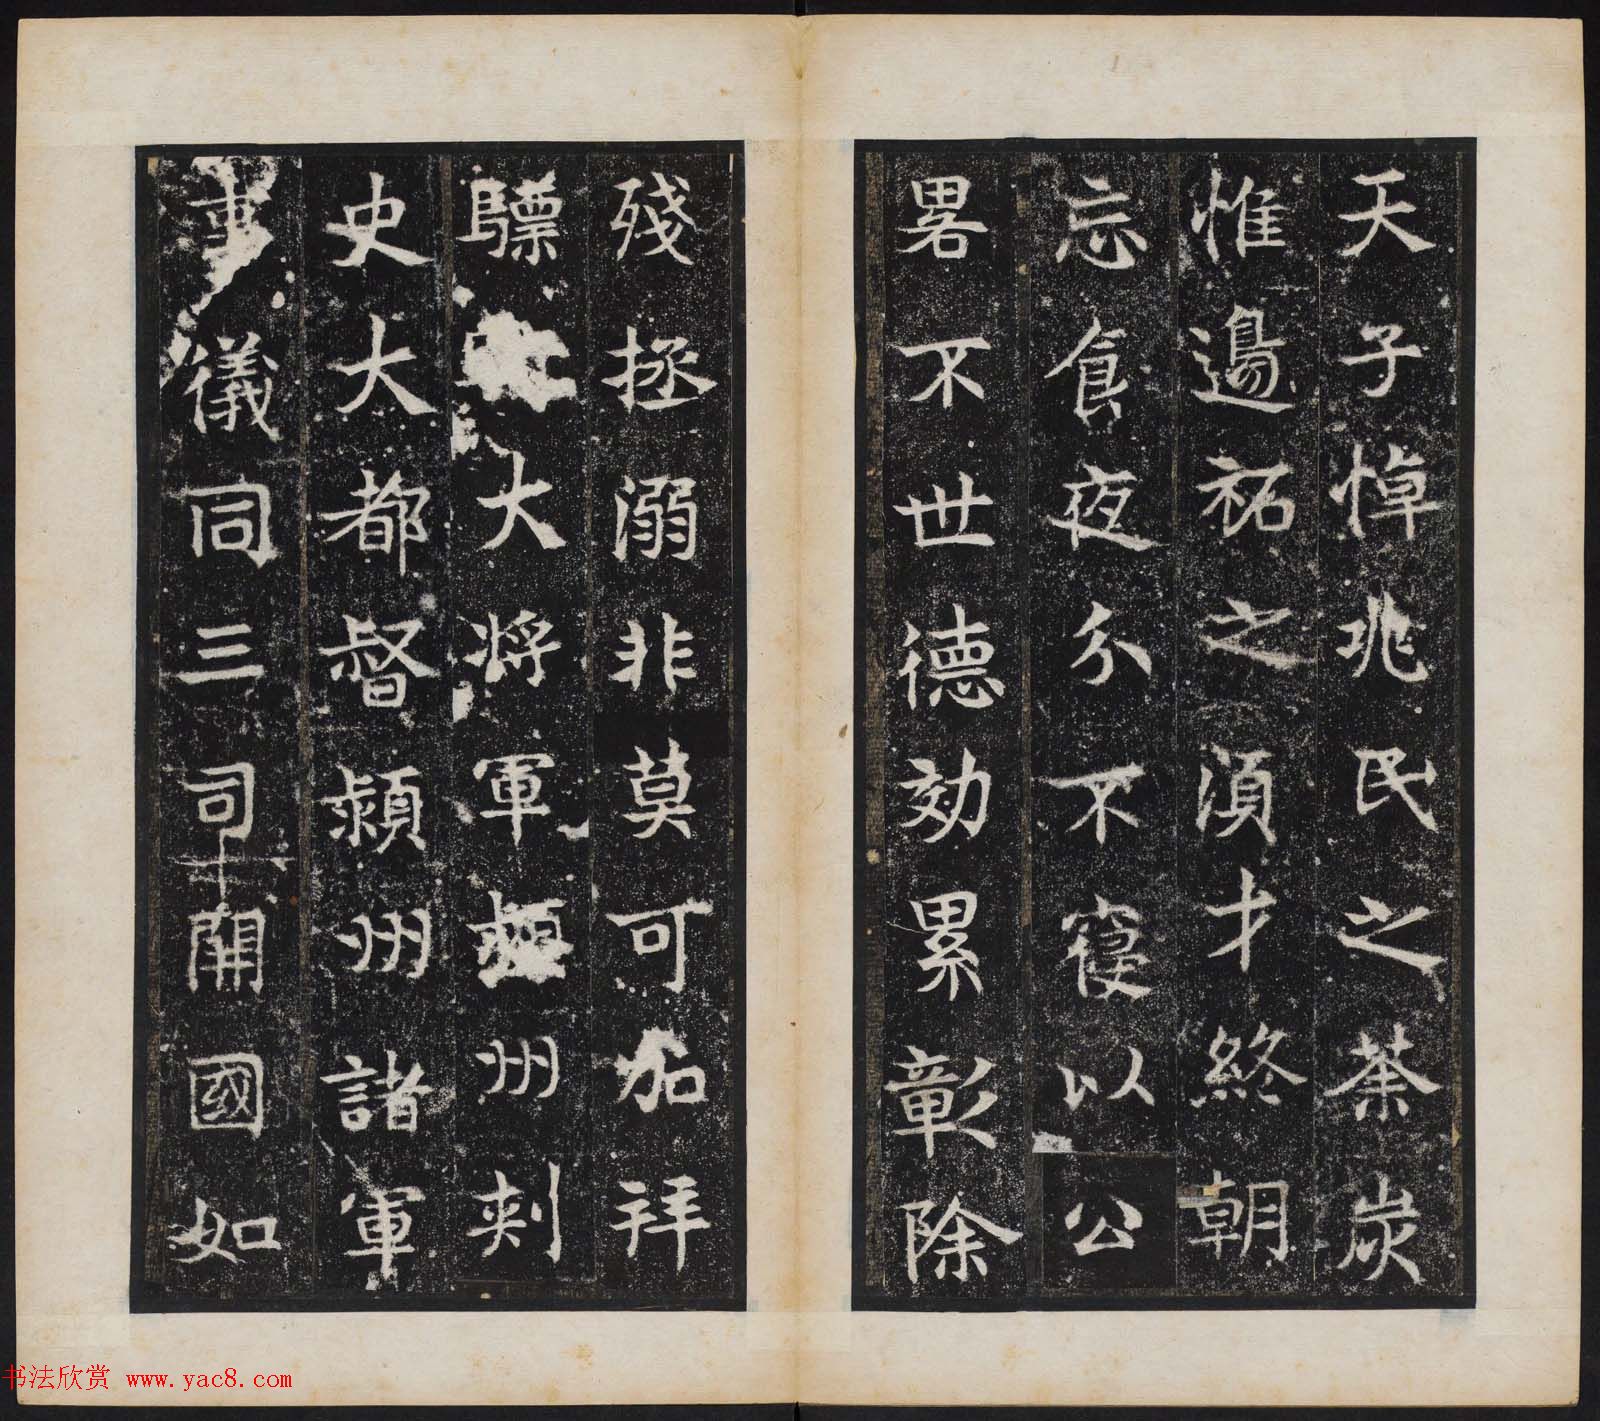 天子悼兆民之荼炭
惟邊祏之須才終朝
忘食夜分不寑以公
畧不世德効累彰除
殘拯溺非莫可加拜
驃大將軍潁州刺
史大都督潁州諸軍
事儀同三司開國如
书法欣赏 www.yac8.com